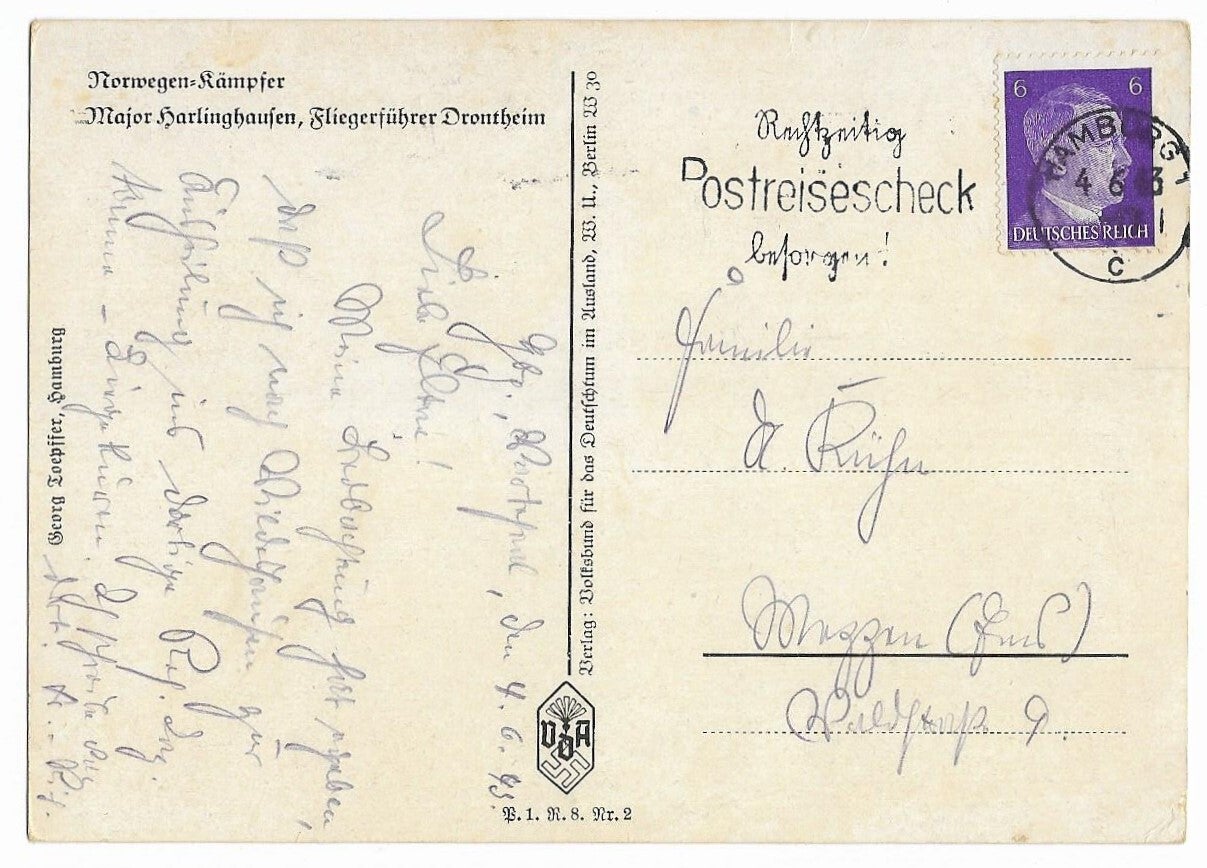 Norwegen-Kämpfer
Major Harlinghausen, Fliegerführer Drontheim
Georg Toepffer, Hamburg
Hbg., den 4. 6. 43.
Liebe Eltern!
Meine Beobachtung hat ergeben,
daß ich nach Wildeshausen zur
Aufteilung ins dortige
komme -
Verlag: Volksbund für das Deutschtum im Ausland, W. U., Berlin W 30
VDA
P. 1. R. 8. Nr. 2
Rechtzeitig
Postreisescheck
besorgen!
6 6
DEUTSCHES REICH
HAMBURG 1
4 6 43
c
Familie
A. Kühn
Meppen (Ems)
Waldstraße 9.